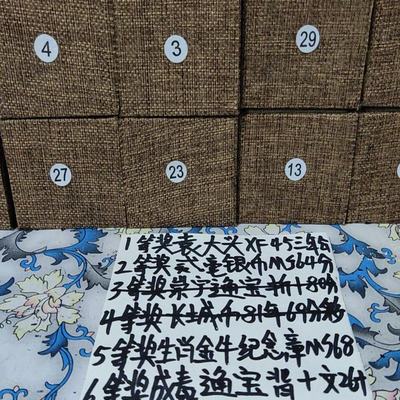 4 3 29
27 23 13
1等奖袁大头XF45三年
2等奖云毫银币MS64分
3等奖崇宁通宝折十80分
4等奖长城币81年69分
5等奖生肖金牛纪念章MS68
6等奖咸丰通宝背十文